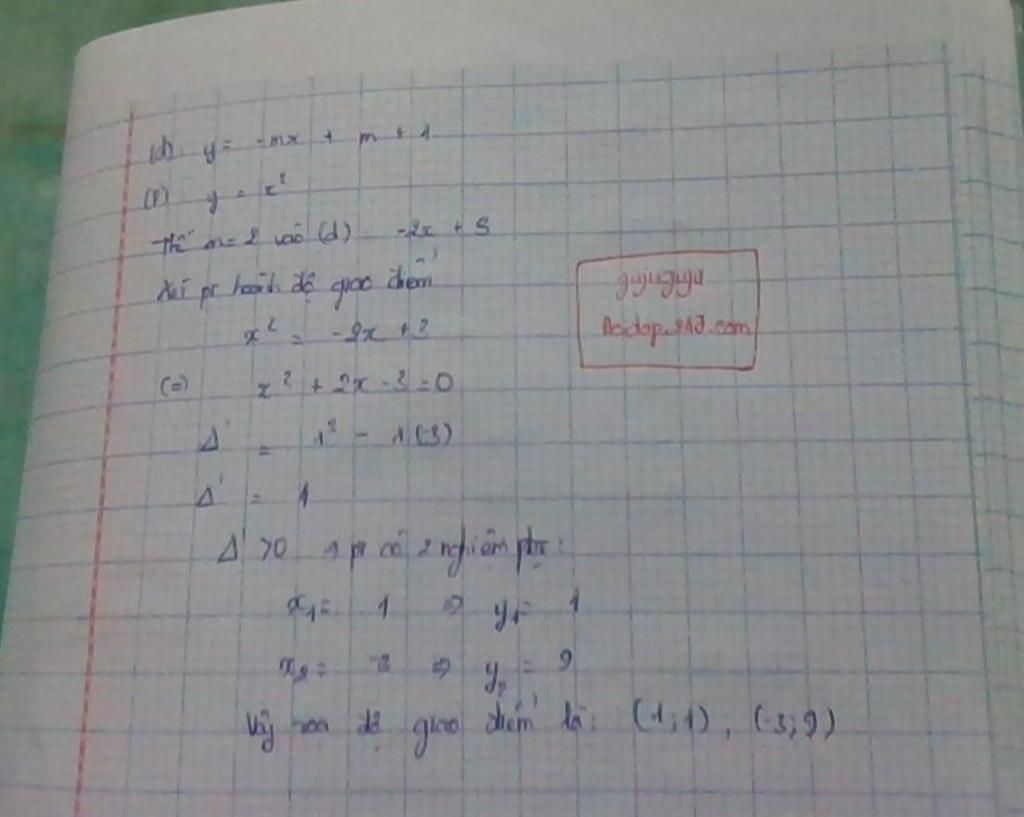 (d) y = -mx + m + 1
(P) y = x²
Thế m=2 vào (d) -2x + 3
Xét pt hoành độ giao điểm
x² = -2x + 3
(=) x² + 2x - 3 = 0
Δ' = 1² - 1(-3)
Δ' = 1
Δ' >0 pt có 2 nghiệm pb:
x₁= 1 => y₁= 1
x₂= -3 => y₂ = 9
Vậy toạ độ giao điểm là: (1;1), (-3;9)
gujuguju